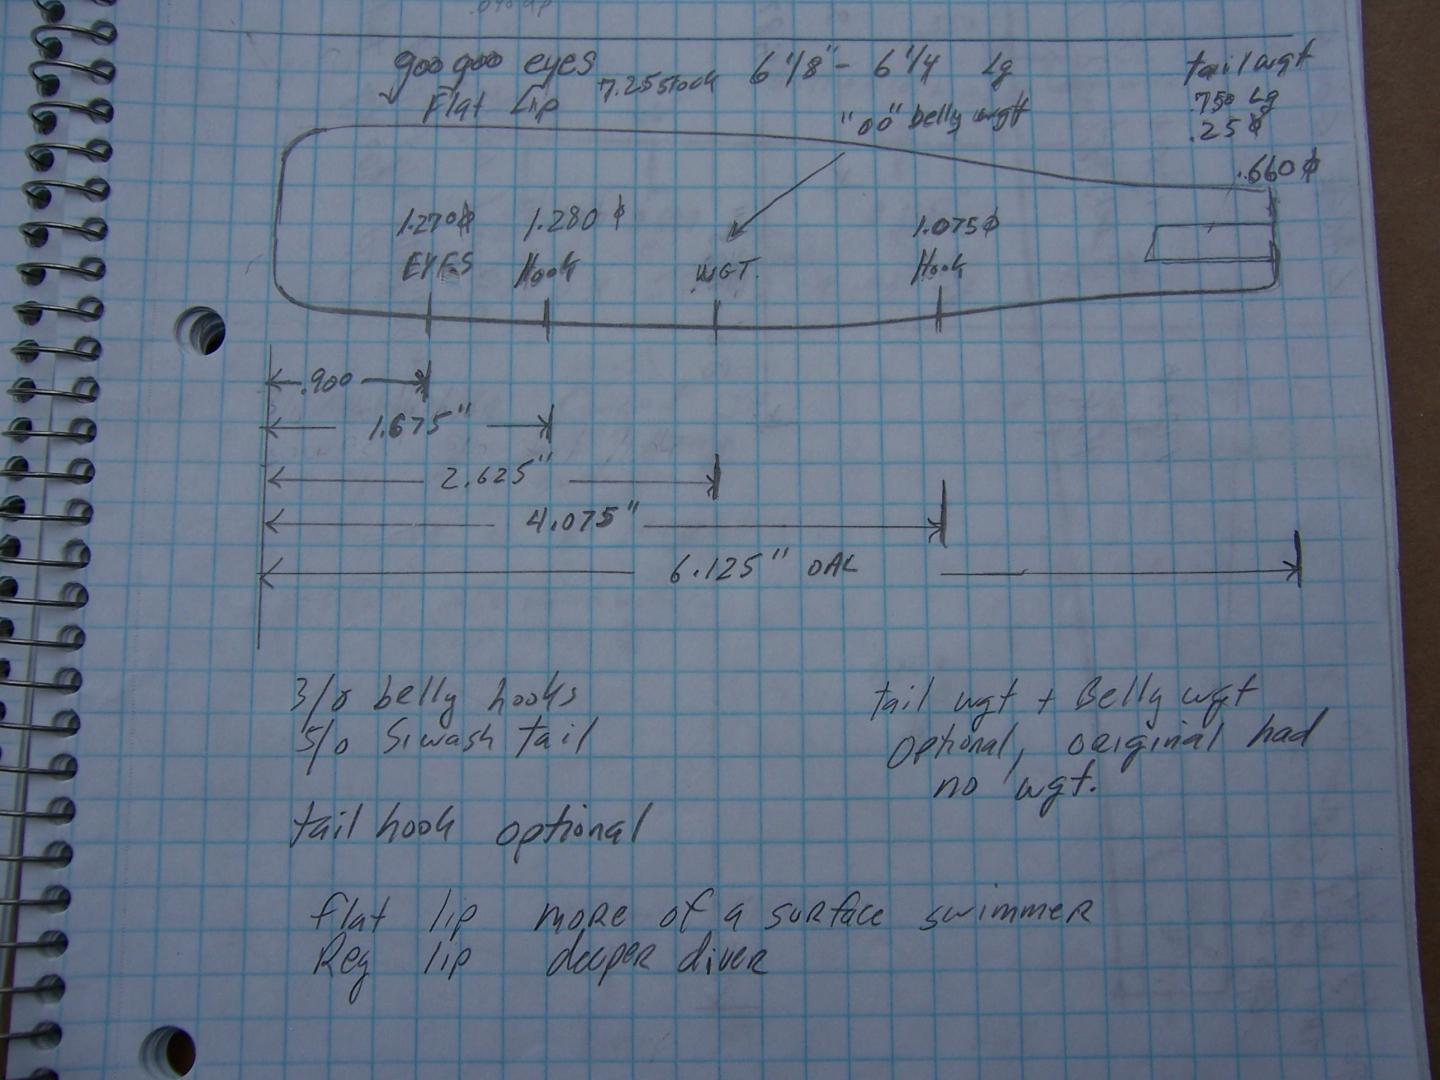 goo goo eyes 7.25 stock 6 1/8" - 6 1/4 Lg
Flat Lip
"00" belly wgt
tail wgt
.750 Lg
.25 ϕ
.660 ϕ
1.270ϕ 1.280 ϕ 1.075ϕ
EYES Hook WGT. Hook
.900
1.675"
2.625"
4.075"
6.125" OAL
3/0 belly hooks
5/0 Siwash tail
tail wgt + Belly wgt
optional, original had
no wgt.
tail hook optional
flat lip more of a surface swimmer
Reg lip deeper diver